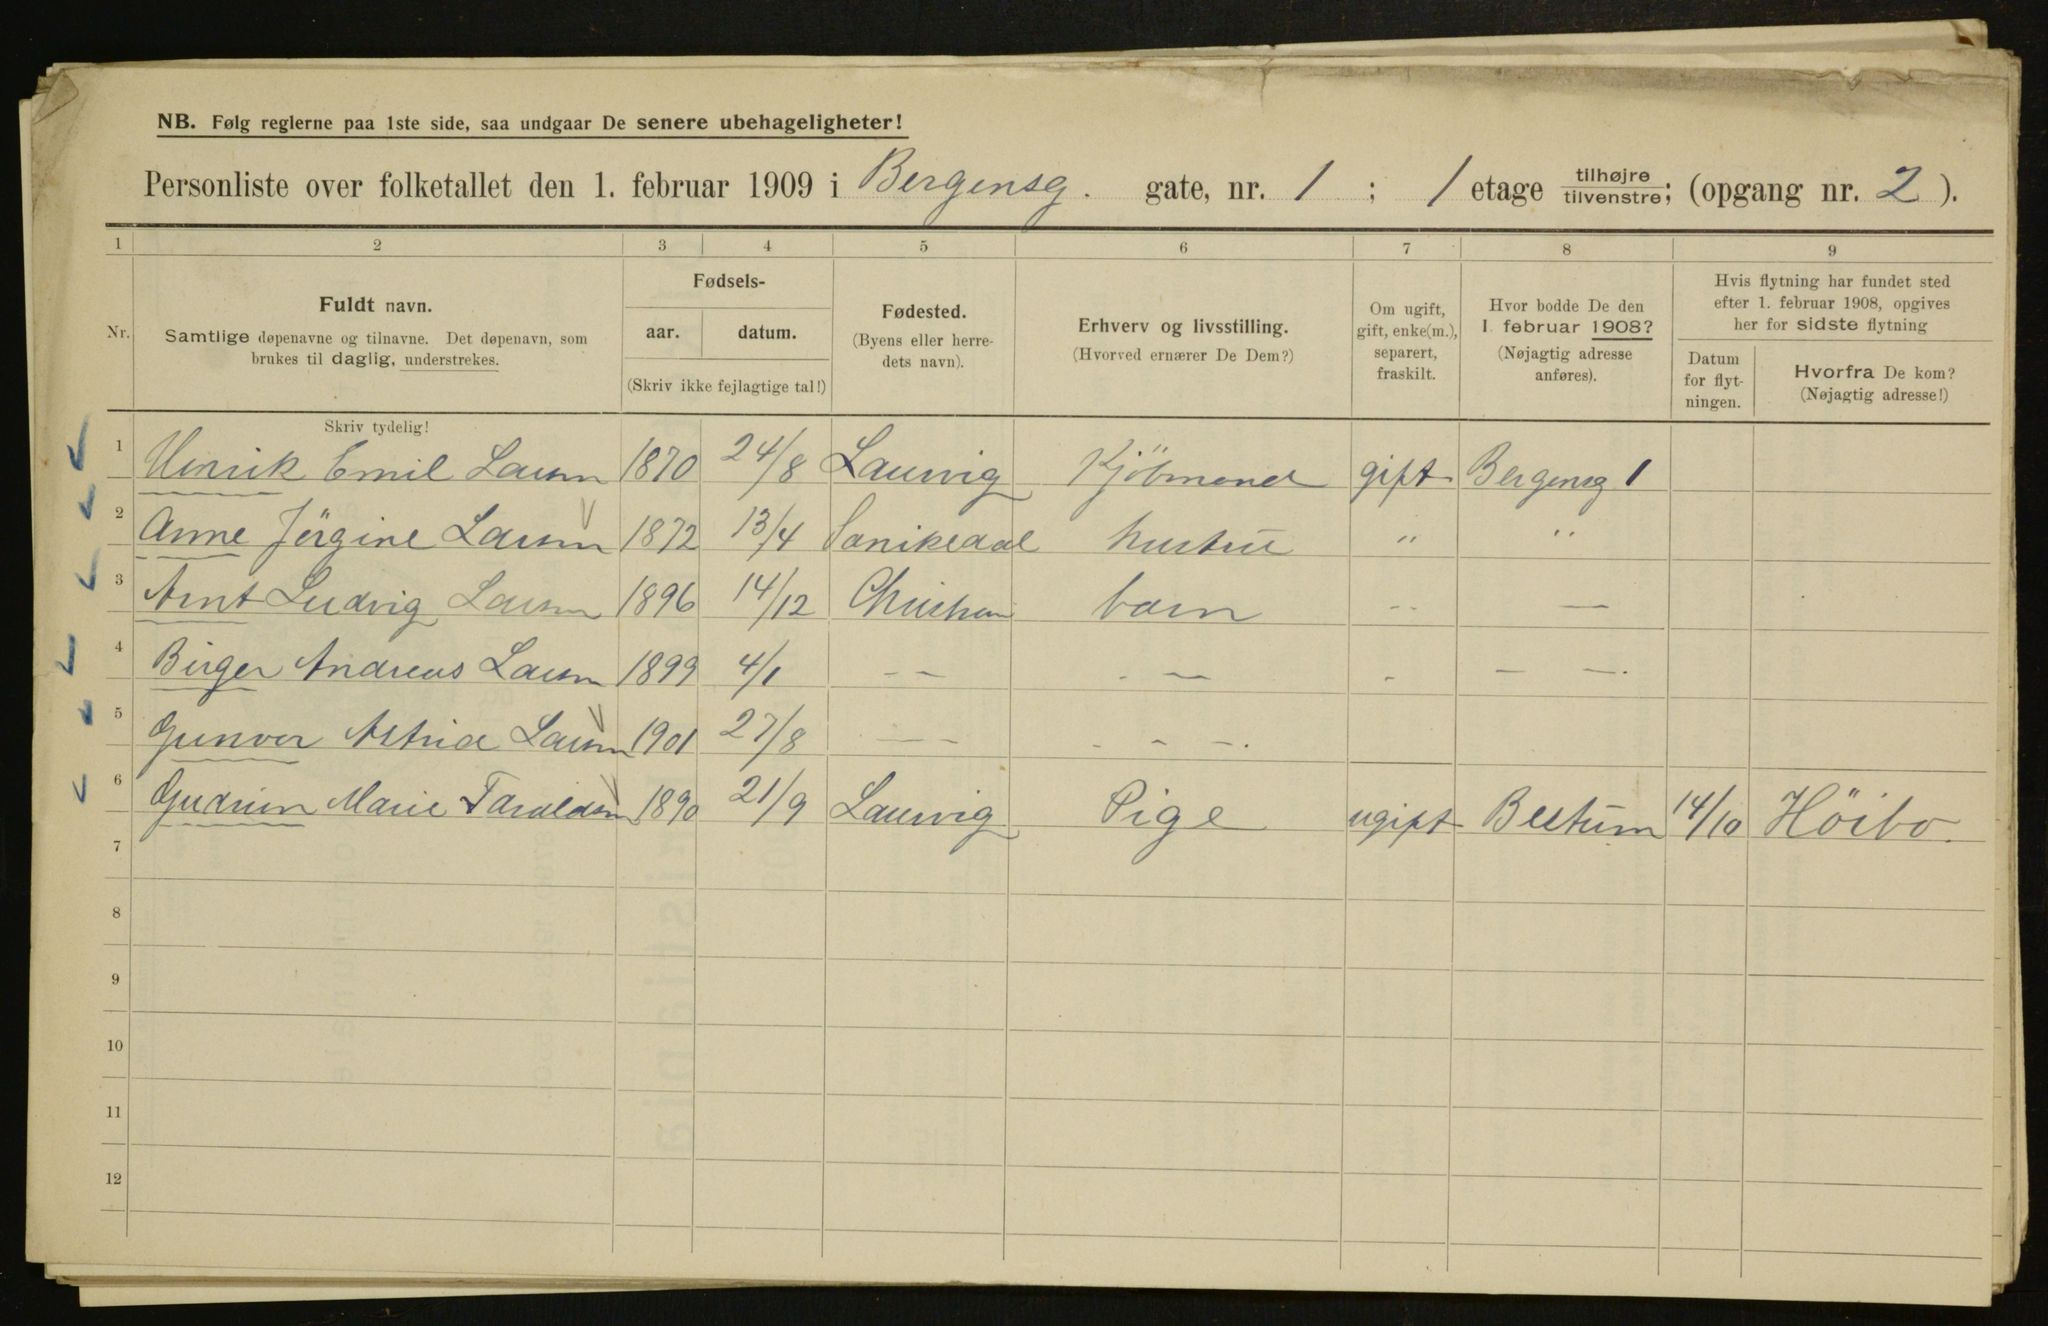 NB. Følg reglerne paa 1ste side, saa undgaar De senere ubehageligheter!
Personliste over folketallet den 1. februar 1909 i Bergensg. gate, nr. 1 ; 1 etage tilhøjre/tilvenstre; (opgang nr. 2 ).
1 2 3 4 5 6 7 8 9
Nr.
Fuldt navn.
Samtlige døpenavne og tilnavne. Det døpenavn, som
brukes til daglig, understrekes.
Skriv tydelig!
Fødsels-
aar. datum.
(Skriv ikke fejlagtige tal!)
Fødested.
(Byens eller herre-
dets navn).
Erhverv og livsstilling.
(Hvorved ernærer De Dem?)
Om ugift,
gift, enke(m.),
separert,
fraskilt.
Hvor bodde De den
1. februar 1908?
(Nøjagtig adresse
anføres).
Hvis flytning har fundet sted
efter 1. februar 1908, opgives
her for sidste flytning
Datum
for flyt-
ningen.
Hvorfra De kom?
(Nøjagtig adresse!)
1 Henrik Emil Larsen 1870 24/8 Laurvig Kjöbmand gift Bergensg 1
2 Anne Jörgine Larsen 1872 13/4 Sanikedal hustru " "
3 Arnt Ludvig Larsen 1896 14/12 Christiani barn -- —
4 Birger Andreas Larsen 1899 4/1 — — - — - — —.
5 Gunvor Astrid Larsen 1901 27/8 — — - - -.
6 Gudrun Marie Taraldsen 1890 21/9 Laurvig Pige ugift Bestum 14/10 Höibo.
7
8
9
10
11
12